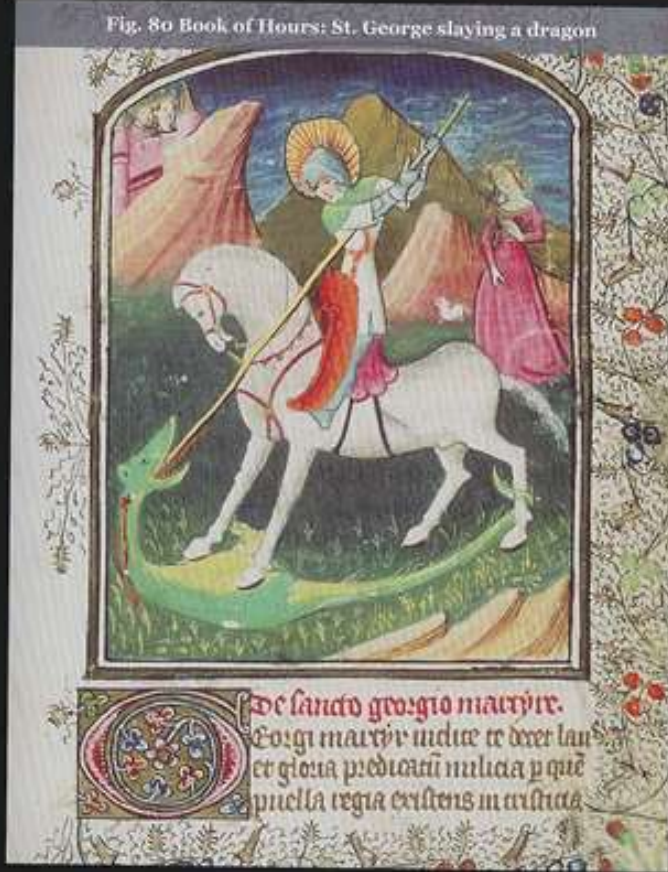 Fig. 80 Book of Hours: St. George slaying a dragon
De sancto georgio martyre.
Georgi martyr inclite te decet lau
et gloria predicatū milicia p quē
puella regia existens in tristicia